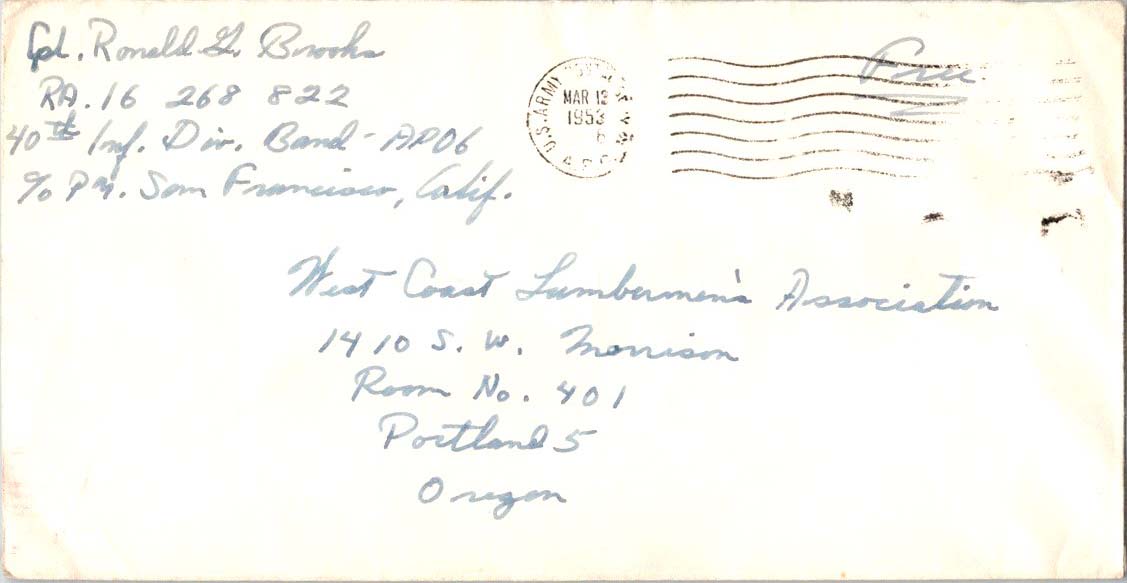 Cpl. Ronald G. Brooks
RA. 16 268 822
40th Inf. Div. Band - APO 6
c/o P.M. San Francisco, Calif.
U.S. ARMY
MAR 12
1953
6
A.P.O.
Free
West Coast Lumbermen's Association
1410 S. W. Morrison
Room No. 401
Portland 5
Oregon